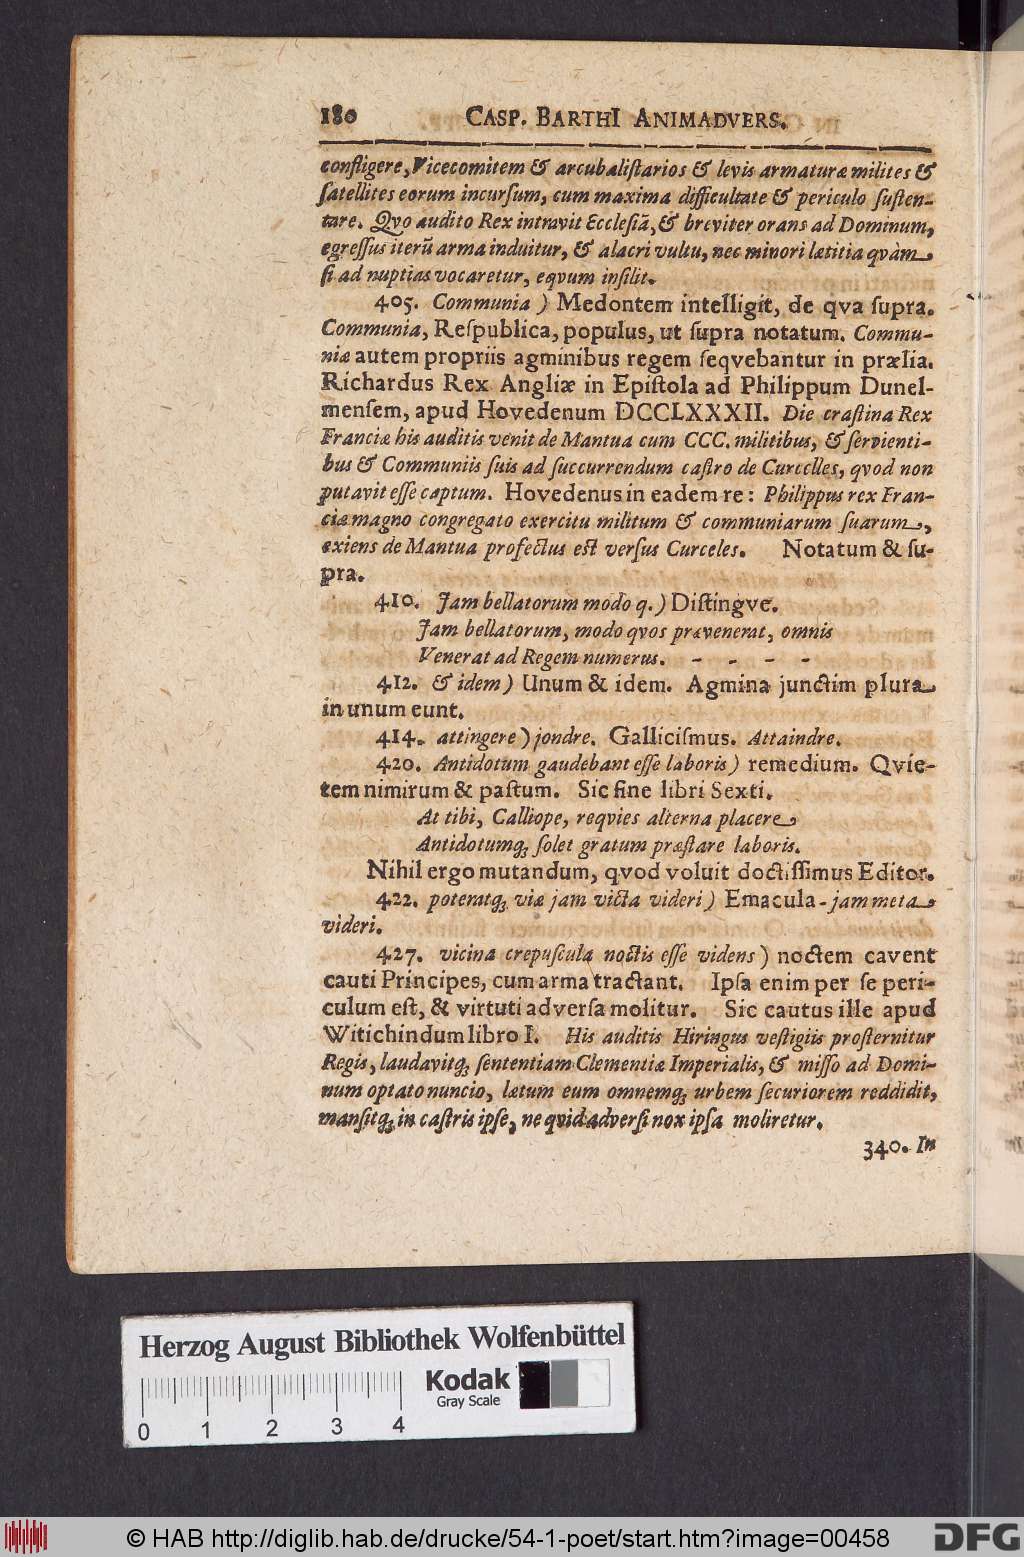 180 CASP. BARTHI ANIMADVERS.
confligere, Vicecomitem & arcubaliſtarios & levis armaturæ milites &
ſatellites eorum incurſum, cum maxima difficultate & periculo ſuſten-
tare. Qvo audito Rex intravit Eccleſiã, & breviter orans ad Dominum,
egreſſus iterũ arma induitur, & alacri vultu, nec minori lætitia qvàm
ſi ad nuptias vocaretur, eqvum inſilit.
405. Communia ) Medontem intelligit, de qva ſupra.
Communia, Reſpublica, populus, ut ſupra notatum. Commu-
niæ autem propriis agminibus regem ſeqvebantur in prælia.
Richardus Rex Angliæ in Epiſtola ad Philippum Dunel-
menſem, apud Hovedenum DCCLXXXII. Die craſtina Rex
Franciæ his auditis venit de Mantua cum CCC. militibus, & ſervienti-
bus & Communiis ſuis ad ſuccurrendum caſtro de Curcelles, qvod non
putavit eſſe captum. Hovedenus in eadem re: Philippus rex Fran-
ciæ magno congregato exercitu militum & communiarum ſuarum,
exiens de Mantua profectus eſt verſus Curceles. Notatum & ſu-
pra.
410. Jam bellatorum modo q.) Diſtingve.
Jam bellatorum, modo qvos prævenerat, omnis
Venerat ad Regem numerus. - - - -
412. & idem) Unum & idem. Agmina junctim plura
in unum eunt.
414. attingere) jondre. Galliciſmus. Attaindre.
420. Antidotum gaudebant eſſe laboris) remedium. Qvie-
tem nimirum & paſtum. Sic fine libri Sexti.
At tibi, Calliope, reqvies alterna placere
Antidotumq; ſolet gratum præſtare laboris.
Nihil ergo mutandum, qvod voluit doctiſſimus Editor.
422. poteratq; viæ jam victa videri) Emacula - jam meta
videri.
427. vicina crepuſcula noctis eſſe videns) noctem cavent
cauti Principes, cum arma tractant. Ipſa enim per ſe peri-
culum eſt, & virtuti adverſa molitur. Sic cautus ille apud
Witichindum libro I. His auditis Hiringus veſtigiis proſternitur
Regis, laudavitq; ſententiam Clementiæ Imperialis, & miſſo ad Domi-
num optato nuncio, lætum eum omnemq; urbem ſecuriorem reddidit,
manſitq; in caſtris ipſe, ne qvid adverſi nox ipſa moliretur.
340. In
Herzog August Bibliothek Wolfenbüttel
Kodak
Gray Scale
0 1 2 3 4
© HAB http://diglib.hab.de/drucke/54-1-poet/start.htm?image=00458
DFG